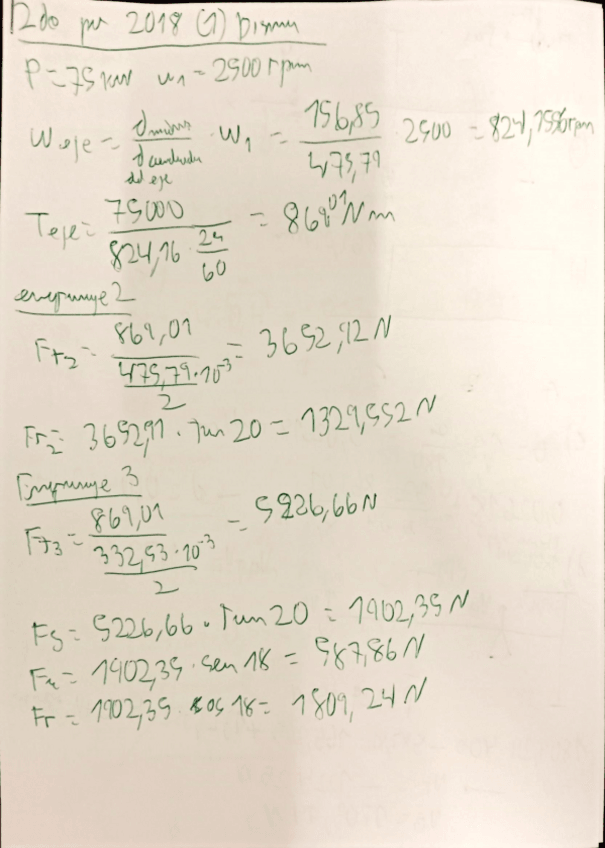 12do per 2018 (1) Disenu
P = 75 kW n1 = 2500 rpm
Weje = dmotriz / dconducida del eje · W1 = 156,85 / 475,79 · 2500 = 824,1556 rpm
Teje = 75000 / 824,16 · 2π / 60 = 869,01 Nm
engranaje 2
Ft2 = 869,01 / 475,79·10⁻³ / 2 = 3652,92 N
Fr2 = 3652,91 · Tan 20 = 1329,552 N
Engranaje 3
Ft3 = 869,01 / 332,53·10⁻³ / 2 = 5226,66 N
FS = 5226,66 · Tan 20 = 1902,35 N
Fa = 1902,35 · sen 18 = 587,86 N
Fr = 1902,35 · cos 18 = 1809,24 N